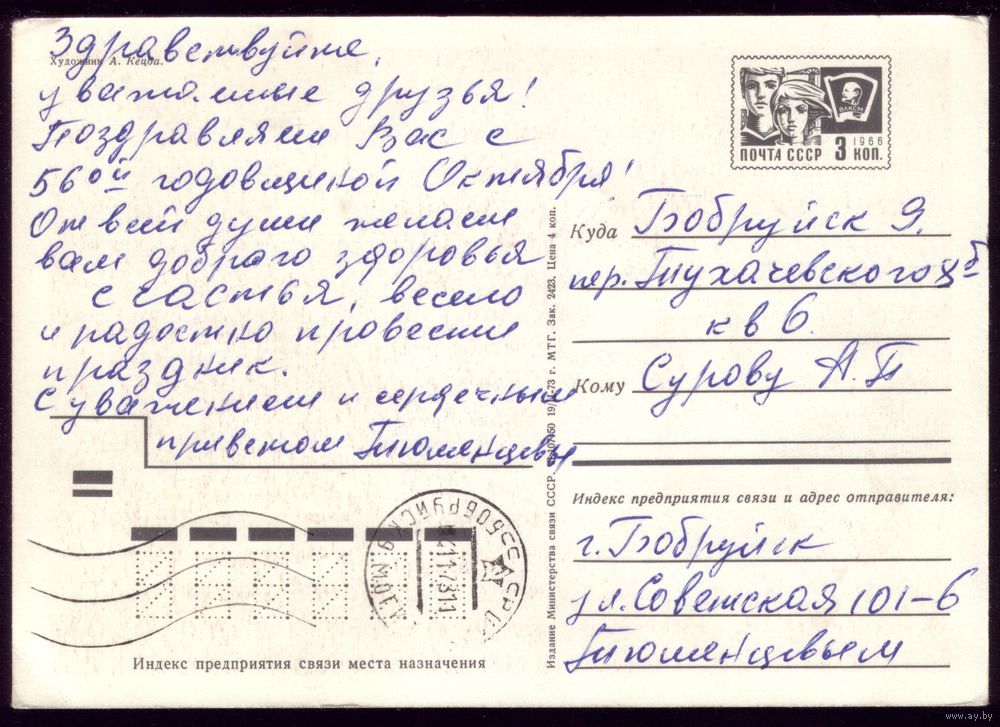 Здравствуйте,
Художник А. Кецба.
уважаемые друзья!
Поздравляем Вас с
56ой годовщиной Октября!
От всей души желаем
вам доброго здоровья
счастья, весело
и радостно провести
праздник.
С уважением и сердечным
приветом Тюменцевы
ВЛКСМ
1966
ПОЧТА СССР 3 КОП.
Куда Бобруйск 9.
пер. Тухачевского
кв 6.
Кому Сурову А.П
Индекс предприятия связи и адрес отправителя:
г. Бобруйск
ул. Советская 101-6
Тюменцевым
Издание Министерства связи СССР. 19/II-73 г. МТГ. Зак. 2423. Цена 4 коп.
БОБРУЙСК
СССР
Индекс предприятия связи места назначения
www.ay.by